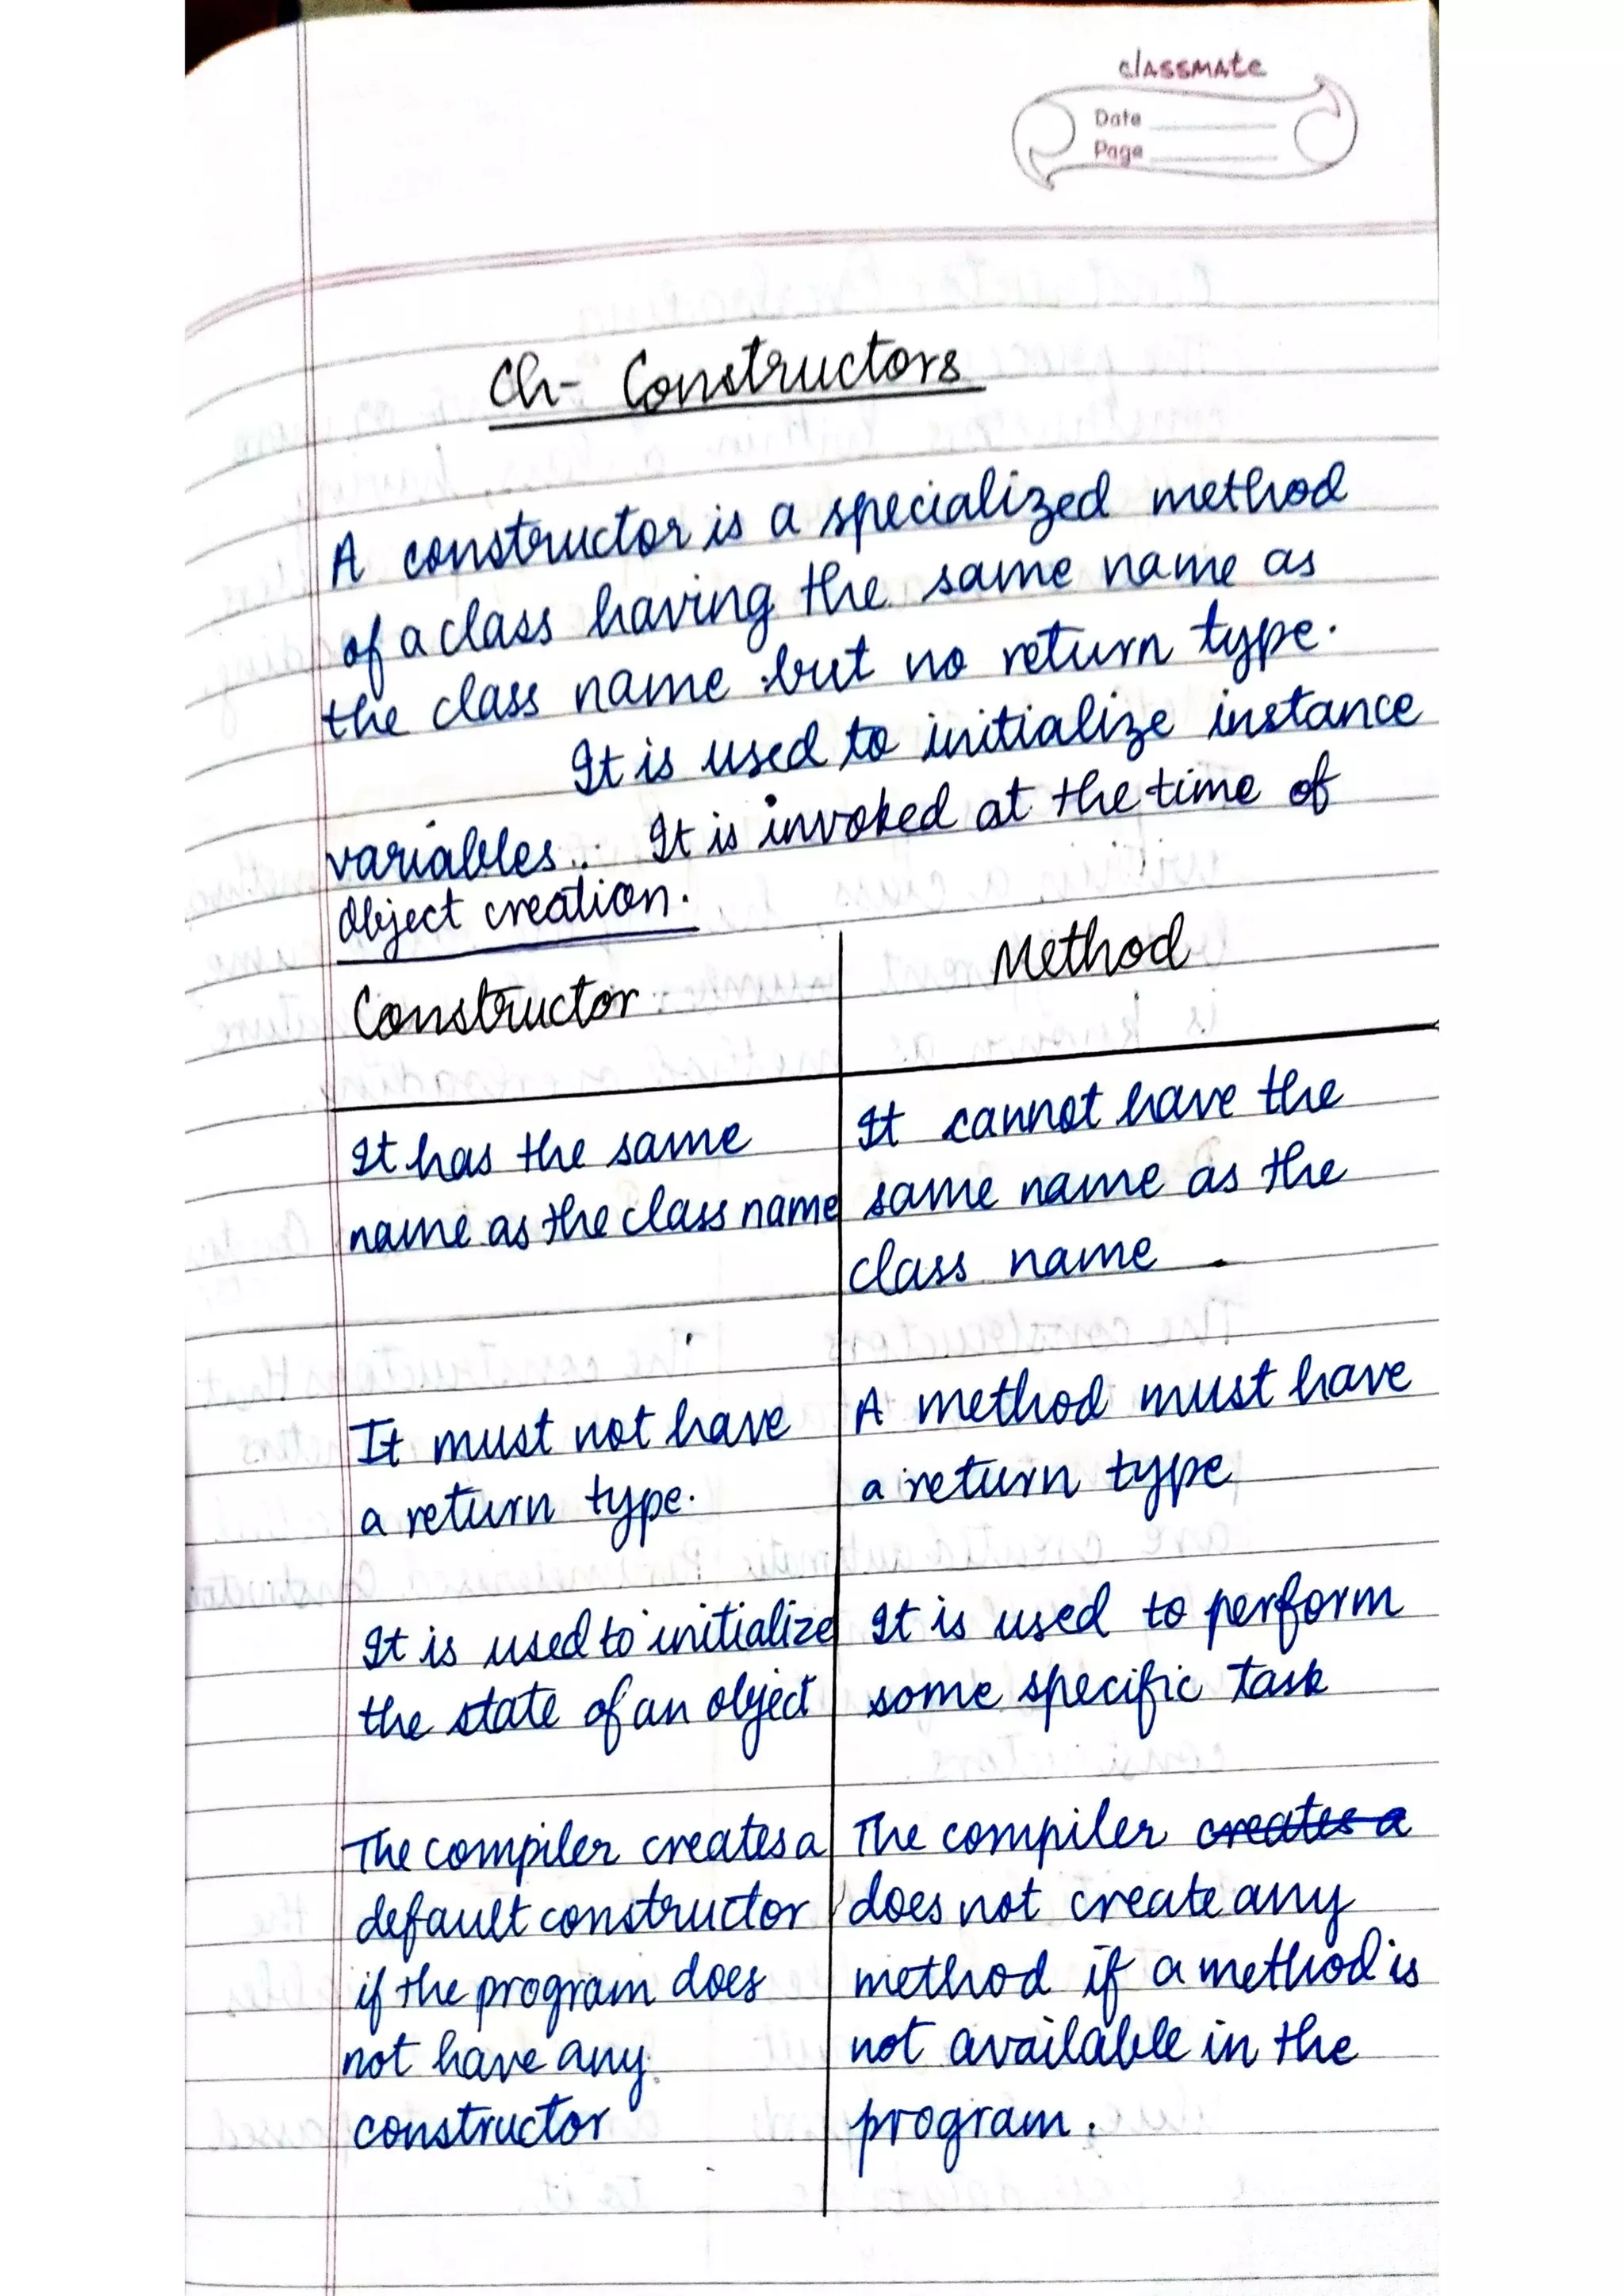 classmate
Date
Page
Ch- Constructors
A constructor is a specialized method
of a class having the same name as
the class name but no return type.
It is used to initialize instance
variables. It is invoked at the time of
object creation.
Constructor
Method
It has the same
name as the class name
It cannot have the
same name as the
class name
It must not have
a return type.
A method must have
a return type
It is used to initialize
the state of an object
It is used to perform
some specific task
The compiler creates a
default constructor
if the program does
not have any
constructor
The compiler creates a
does not create any
method if a method is
not available in the
program.